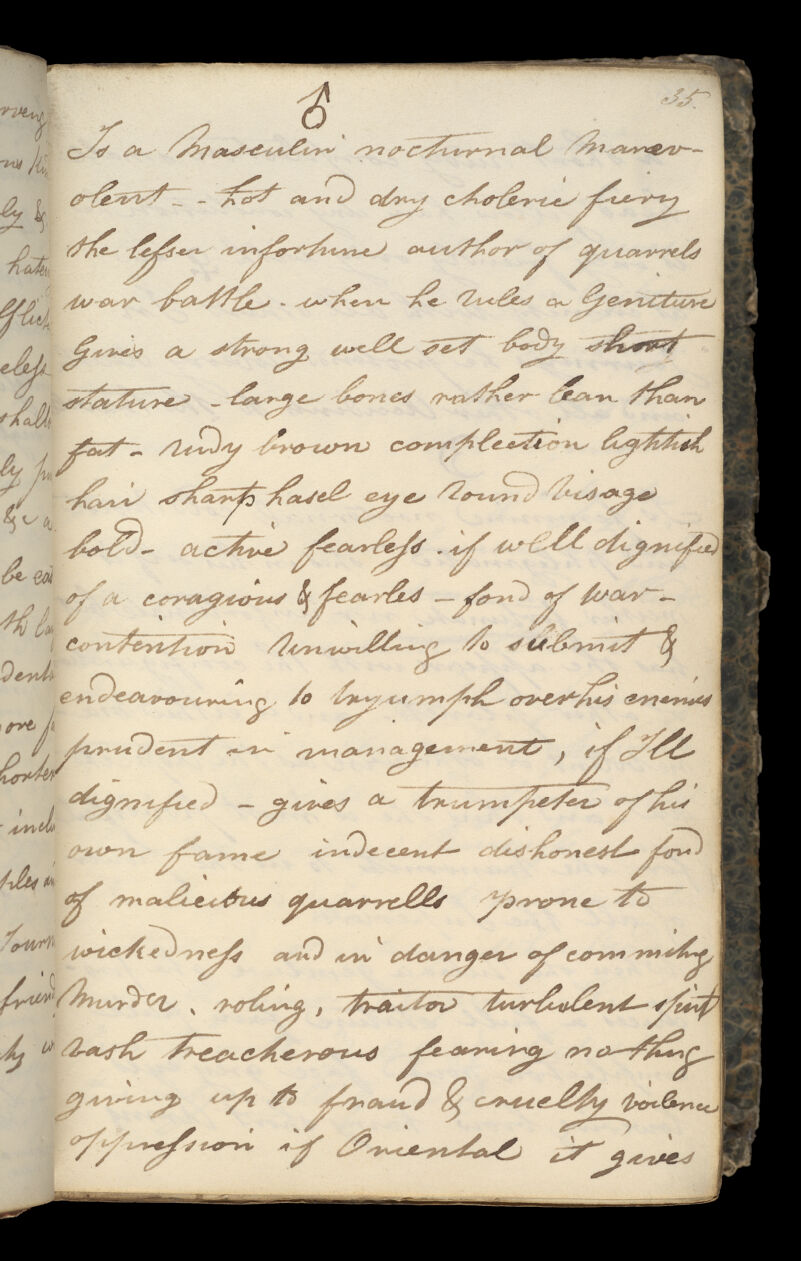 35.
♂
Is a Masculin nocturnal Manev-
olent - - hot and dry choleric fiery
the lesser infortune author of quarrels
war battle. when he rules a Geniture
Gives a strong well set body short
stature - large bones rather lean than
fat - rudy brown complection lightish
hair sharp hasel eye round visage
bold - active fearless. if well dignified
of a coragious & fearles - fond of war -
contention Unwilling to submit &
endeavouring to tryumph over his enemies
prudent in management, if Ill
dignified - gives a trumpeter of his
own fame indecent dishonest fond
of malicious quarrells prone to
wickedness and in danger of commiting
Murder. roling, traitor turbulent spirit
rash treacherous fearing nothing
giving up to fraud & cruelty voilence
oppression if Oriental it gives